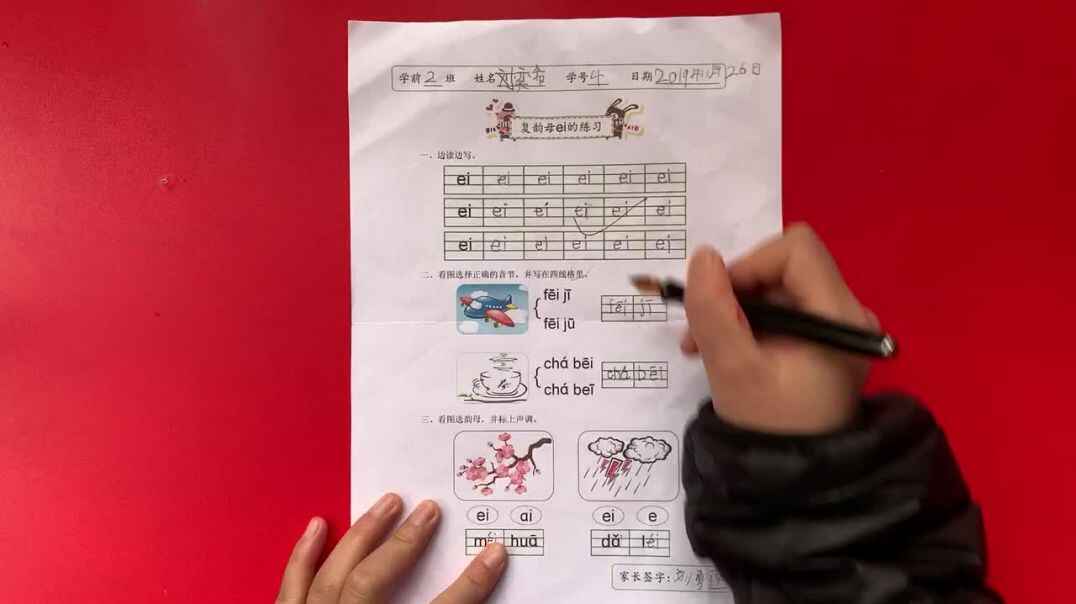 学前 2 班 姓名 刘奕希 学号 4 日期 2019年11月26日
复韵母ei的练习
一、边读边写。
ei ei ei ei ei ei
ei ei ei ei ei ei
ei ei ei ei ei ei
二、看图选择正确的音节，并写在四线格里。
fēi jī
fēi jī
fēi jū
chá bēi
chá bēi
chá beī
三、看图选韵母，并标上声调。
ei ai ei e
méi huā dǎ léi
家长签字：刘